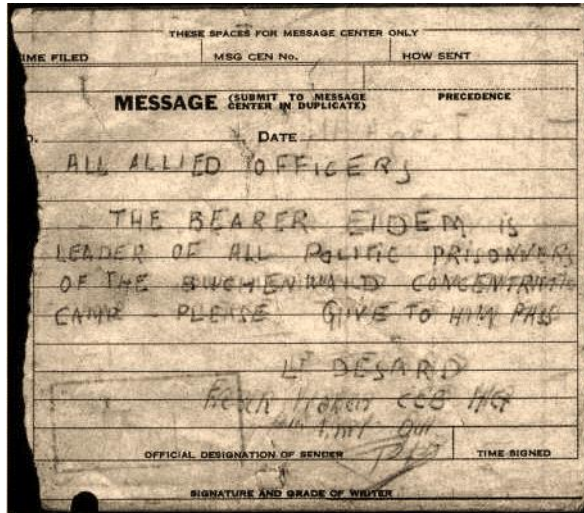 THESE SPACES FOR MESSAGE CENTER ONLY
IME FILED MSG CEN No. HOW SENT
MESSAGE (SUBMIT TO MESSAGE CENTER IN DUPLICATE) PRECEDENCE
O. DATE
ALL ALLIED OFFICERS
THE BEARER EIDEM is
LEADER OF ALL POLITIC PRISONNERS
OF THE BUCHENWALD CONCENTRATIO
CAMP - PLEASE GIVE TO HIM PASS
Lt DESARD
CCB HQ
OFFICIAL DESIGNATION OF SENDER TIME SIGNED
SIGNATURE AND GRADE OF WRITER